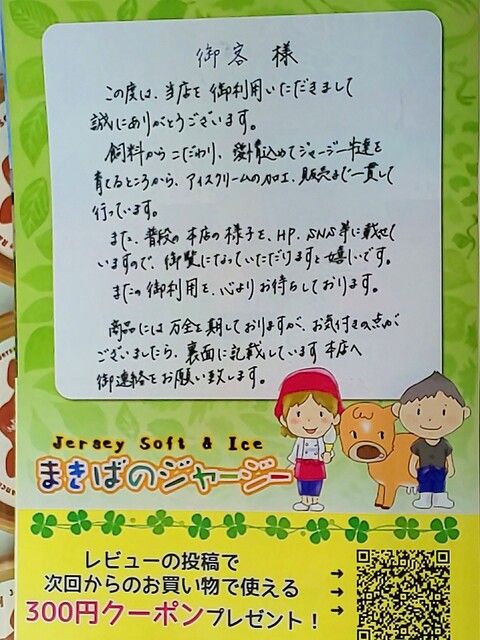 御客様
この度は、当店を御利用いただきまして
誠にありがとうございます。
飼料からこだわり、愛情込めてジャージー牛達を
育てるところから、アイスクリームの加工、販売まで一貫して
行っています。
また、普段の本店の様子を、HP、SNS等に載せて
いますので、御覧になっていただけますと嬉しいです。
またの御利用を、心よりお待ちしております。
商品には万全を期しておりますが、お気付きの点が
ございましたら、裏面に記載しています本店へ
御連絡をお願い致します。
Jersey Soft & Ice
まきばのジャージー
レビューの投稿で
次回からのお買い物で使える
300円クーポンプレゼント!